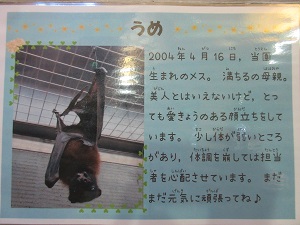 うめ
2004年4月16日，当園
生まれのメス。満ちるの母親。
美人とはいえないけど，とっ
ても愛きょうのある顔立ちをして
います。少し体が弱いところ
があり，体調を崩しては担当
者を心配させています。まだ
まだ元気に頑張ってね♪